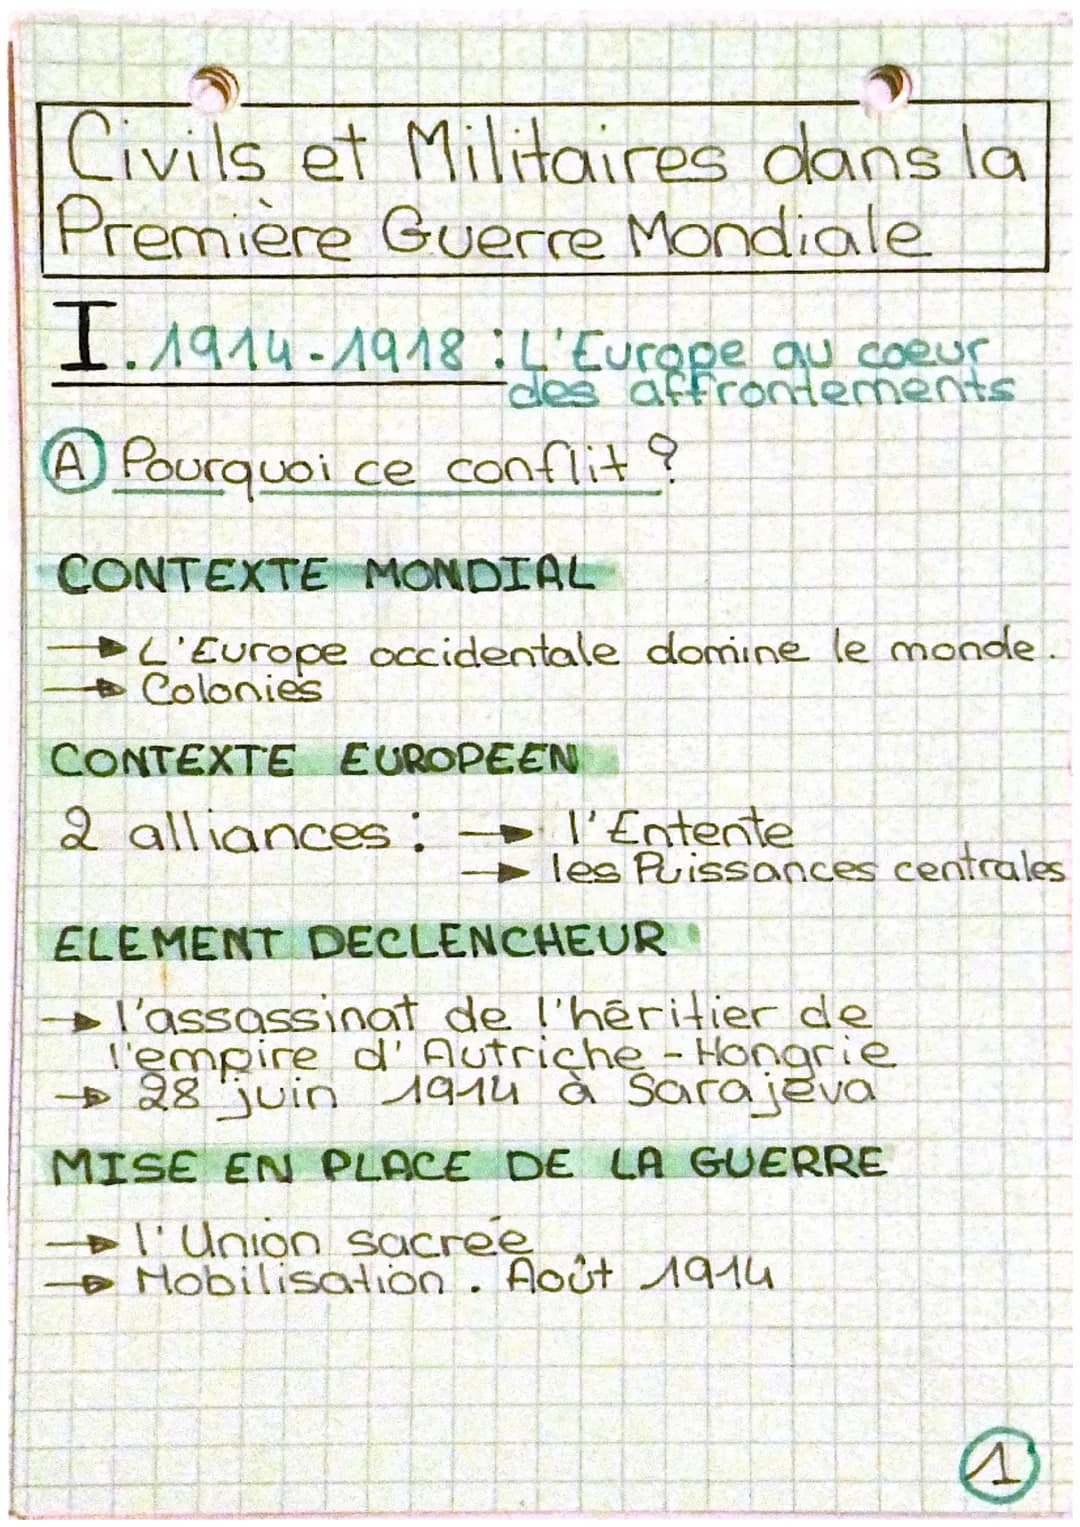 Civils et Militaires dans la
Première Guerre Mondiale
I. 1914-1918 : L'Europe au coeur
des affrontements
A Pourquoi ce conflit ?
CONTEXTE MONDIAL
→ L'Europe occidentale domine le monde.
→ Colonies
CONTEXTE EUROPEEN
2 alliances : → l'Entente
→ les Puissances centrales
ELEMENT DECLENCHEUR
→ l'assassinat de l'héritier de
l'empire d'Autriche-Hongrie
→ 28 juin 1914 à Sarajeva
MISE EN PLACE DE LA GUERRE
→ l'Union sacrée
→ Mobilisation. Août 1914
1